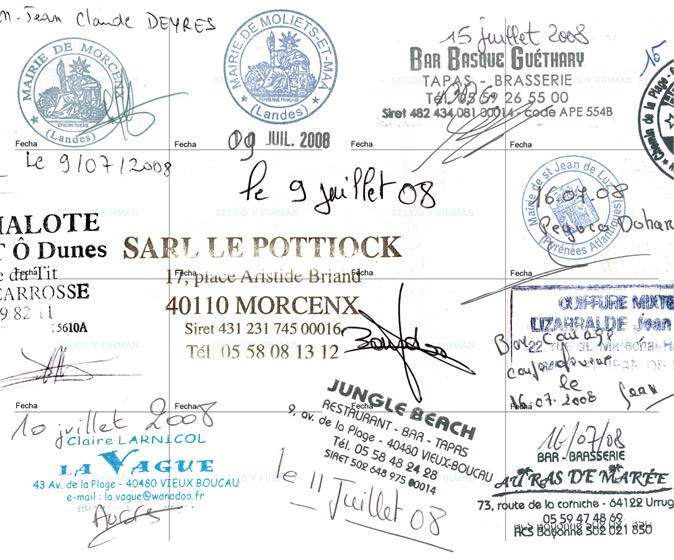 M. Jean Claude DEYRES
MAIRIE DE MORCENX
(Landes)
Fecha
Le 9/07/2008
MAIRIE DE MOLIETS-ET-MAA
RÉPUBLIQUE FRANÇAISE
(Landes)
09 JUIL. 2008
Fecha
le 9 juillet 08
15 juillet 2008
BAR BASQUE GUÉTHARY
TAPAS - BRASSERIE
Tél. 05 59 26 55 00
Siret 482 434 081 00014 - code APE 554B
Fecha
SELOS Y FIRMAS
15
Chemin de la Plage
Mairie de St Jean de Luz
(Pyrénées Atlantiques)
16.07.08
Fecha
HALOTE
T Ô Dunes
e de Tit
CARROSSE
5610A
Fecha
SARL LE POTTIOCK
17, place Aristide Briand
40110 MORCENX
Siret 431 231 745 00016
Tél. 05 58 08 13 12
Fecha
COIFFURE MIXTE
LIZARRALDE Jean
Bon courage
le
16.07.2008
Jean
Fecha
10 juillet 2008
Claire LARNICOL
LA VAGUE
43 Av. de la Plage - 40480 VIEUX BOUCAU
e-mail : la.vague@wanadoo.fr
Fecha
JUNGLE BEACH
RESTAURANT - BAR - TAPAS
9, av. de la Plage - 40480 VIEUX-BOUCAU
Tél. 05 58 48 24 28
SIRET 502 648 975 00014
le 11 Juillet 08
Fecha
16/07/08
BAR - BRASSERIE
AU RAS DE MARÉE
73, route de la corniche - 64122 Urrug
05 59 47 48 69
RCS Bayonne 502 021 850